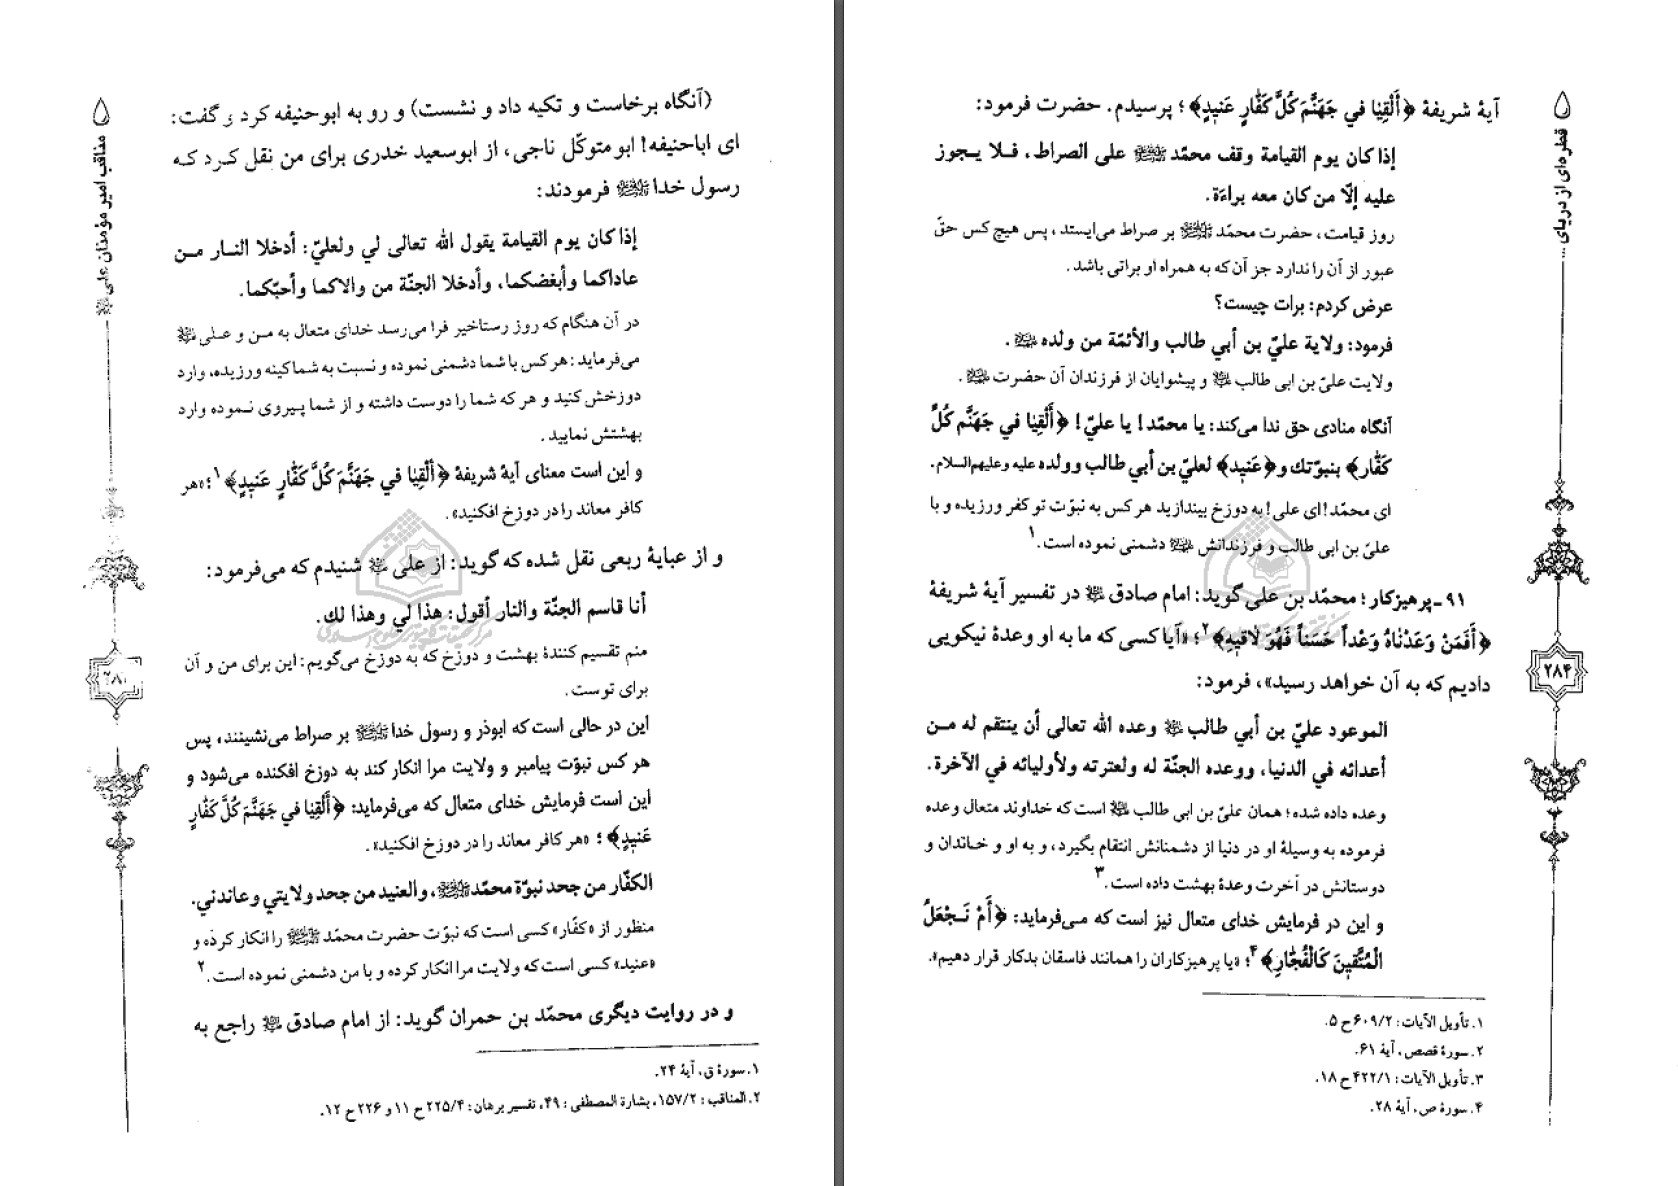 مناقب امیر مؤمنان علی
(آنگاه برخاست و تکیه داد و نشست) و رو به ابوحنیفه کرد و گفت:
ای اباحنیفه! ابو متوکّل ناجی، از ابوسعید خدری برای من نقل کرد که
رسول خدا ﷺ فرمودند:
إذا كان يوم القيامة يقول الله تعالى لي ولعليّ: أدخلا النار من
عاداكما وأبغضكما، وأدخلا الجنّة من والاكما وأحبّكما.
در آن هنگام که روز رستاخیر فرا می‌رسد خدای متعال به من و علی
می‌فرماید: هر کس با شما دشمنی نموده و نسبت به شما کینه ورزیده، وارد
دوزخش کنید و هر که شما را دوست داشته و از شما پیروی نموده وارد
بهشتش نمایید.
و این است معنای آیۀ شریفۀ ﴿أَلْقِيٰا في جَهَنَّمَ كُلَّ كَفّٰارٍ عَنيدٍ﴾ ۱؛ «هر
کافر معاند را در دوزخ افکنید».
و از عبایۀ ربعی نقل شده که گوید: از علی شنیدم که می‌فرمود:
أنا قاسم الجنّة والنار أقول: هذا لي وهذا لك.
منم تقسیم کنندۀ بهشت و دوزخ که به دوزخ می‌گویم: این برای من و آن
برای توست.
این در حالی است که ابوذر و رسول خدا ﷺ بر صراط می‌نشینند، پس
هر کس نبوّت پیامبر و ولایت مرا انکار کند به دوزخ افکنده می‌شود و
این است فرمایش خدای متعال که می‌فرماید: ﴿أَلْقِيٰا في جَهَنَّمَ كُلَّ كَفّٰارٍ
عَنيدٍ﴾ ؛ «هر کافر معاند را در دوزخ افکنید».
الكفّار من جحد نبوّة محمّد ﷺ، والعنيد من جحد ولايتي وعاندني.
منظور از «کفّار» کسی است که نبوّت حضرت محمّد ﷺ را انکار کرده و
«عنید» کسی است که ولایت مرا انکار کرده و با من دشمنی نموده است. ۲
و در روایت دیگری محمّد بن حمران گوید: از امام صادق راجع به
۱. سورۀ ق، آیۀ ۲۴.
۲. المناقب: ۱۵۷/۲، بشارة المصطفی: ۴۹، تفسیر برهان: ۲۲۵/۴ ح ۱۱ و ۲۲۶ ح ۱۲.
قطره‌ای از دریای ...
۲۸۴
آیۀ شریفۀ ﴿أَلْقِيٰا في جَهَنَّمَ كُلَّ كَفّٰارٍ عَنيدٍ﴾؛ پرسیدم. حضرت فرمود:
إذا كان يوم القيامة وقف محمّد ﷺ على الصراط، فلا يجوز
عليه إلّا من كان معه براءة.
روز قیامت، حضرت محمّد ﷺ بر صراط می‌ایستد، پس هیچ کس حقّ
عبور از آن را ندارد جز آن که به همراه او براتی باشد.
عرض کردم: برات چیست؟
فرمود: ولاية عليّ بن أبي طالب والأئمّة من ولده.
ولایت علیّ بن ابی طالب و پیشوایان از فرزندان آن حضرت.
آنگاه منادی حق ندا می‌کند: يا محمّد! يا عليّ! ﴿أَلْقِيٰا في جَهَنَّم كُلَّ
كَفّٰار﴾ بنبوّتك و ﴿عَنيد﴾ لعليّ بن أبي طالب وولده علیه وعلیهم‌السلام.
ای محمّد! ای علی! به دوزخ بیندازید هر کس به نبوّت تو کفر ورزیده و با
علیّ بن ابی طالب و فرزندانش دشمنی نموده است. ۱
۹۱ـ پرهیزکار؛ محمّد بن علی گوید: امام صادق در تفسیر آیۀ شریفۀ
﴿أَفَمَنْ وَعَدْنٰاهُ وَعْداً حَسَناً فَهُوَ لٰاقيهِ﴾ ۲؛ «آیا کسی که ما به او وعدۀ نیکویی
دادیم که به آن خواهد رسید»، فرمود:
الموعود عليّ بن أبي طالب وعده الله تعالى أن ينتقم له من
أعدائه في الدنيا، ووعده الجنّة له ولعترته ولأوليائه في الآخرة.
وعده داده شده؛ همان علیّ بن ابی طالب است که خداوند متعال وعده
فرموده به وسیلۀ او در دنیا از دشمنانش انتقام بگیرد، و به او و خاندان و
دوستانش در آخرت وعدۀ بهشت داده است. ۳
و این در فرمایش خدای متعال نیز است که می‌فرماید: ﴿أَمْ نَجْعَلُ
الْمُتَّقينَ كَالْفُجّٰارِ﴾ ۴؛ «یا پرهیزکاران را همانند فاسقان بدکار قرار دهیم».
۱. تأویل الآیات: ۶۰۹/۲ ح ۵.
۲. سورۀ قصص، آیۀ ۶۱.
۳. تأویل الآیات: ۴۲۲/۱ ح ۱۸.
۴. سورۀ ص، آیۀ ۲۸.